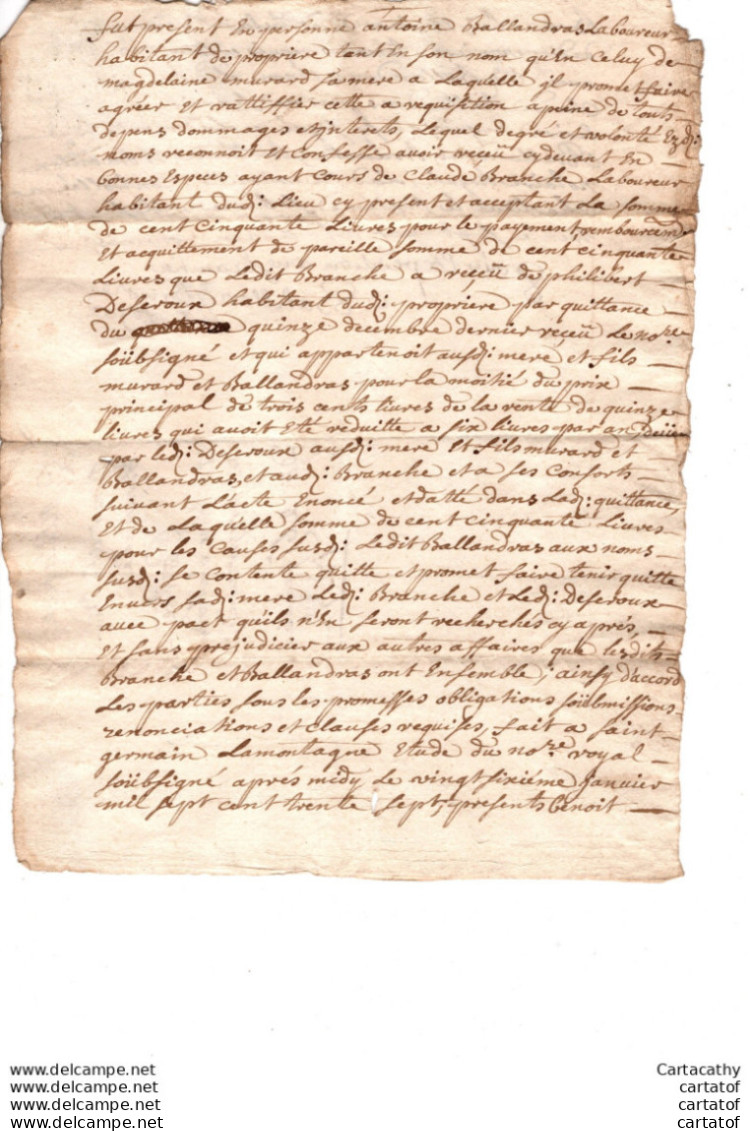 fut present En personne antoine Ballandras Laboureur
habitant de propriere tant En son nom qu'En Celuy de
magdelaine murard sa mere a Laquelle jl promet faire
agréer Et rattiffier cette a requisition a peine de touts
depens dommages et jnterets, Lequel de gré et volonté Ezd:
noms reconnoit et Confesse avoir reçeü cy devant En
bonnes Especes ayant Cours de Claude Branche Laboureur
habitant dud: Lieu cy present et acceptant La somme
de cent cinquante Livres pour le payement rembourcem
Et acquittement de pareille somme de cent cinquante
Livres que Ledit Branche a reçeü de philibert
Deseroux habitant dud: propriere par quittance
du quinze decembre dernier reçeü Le no.re
soübsigné et qui appartenoit ausd: mere et fils
murard et Ballandras pour la moitié du prix
principal de trois cents livres de la rente de quinze
Livres qui avoit Eté reduitte a six livres par an deüe
par led: Deseroux ausd: mere Et fils murard et
Ballandras, et aud: Branche et a ses Consorts
suivant L'acte Enoncé et datté dans Lad: quittance,
Et de Laquelle somme de cent cinquante Livres
pour les Causes susd: Ledit Ballandras aux noms
susd: se contente quitte et promet faire tenir quitte
Envers sad: mere Led: Branche et Led: Deseroux
avec pact qu'ils n'En seront recherchés cy aprés,
Et sans prejudicier aux autres affaires que lesdits
Branche et Ballandras ont Ensemble; ainsy d'accord
Les parties sous les promesses obligations soübmissions
renonciations et clauses requises, fait a saint
germain Lamontagne Etude du no.re royal
soübsigné aprés midy Le vingt sixiéme Janvier
mil sept cent trente sept, presents benoit
www.delcampe.net
www.delcampe.net
www.delcampe.net
www.delcampe.net
Cartacathy
cartatof
cartatof
cartatof